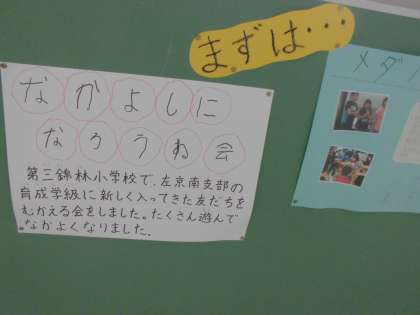 まずは…
なかよしに
なろうね会
第三錦林小学校で、左京南支部の
育成学級に新しく入ってきた友だちを
むかえる会をしました。たくさん遊んで
なかよくなりました。
メダ